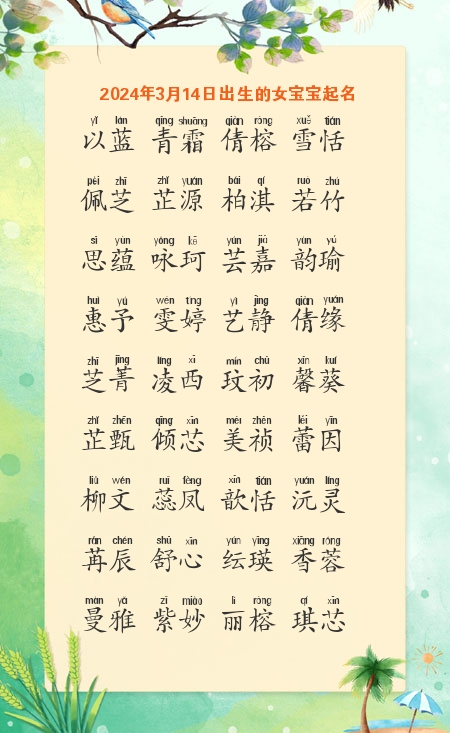 2024年3月14日出生的女宝宝起名
yǐ lán qīng shuāng qiàn róng xuě tián
以蓝 青霜 倩榕 雪恬
pèi zhī zhǐ yuán bǎi qí ruò zhú
佩芝 芷源 柏淇 若竹
sī yùn yǒng kē yún jiā yùn yú
思蕴 咏珂 芸嘉 韵瑜
huì yú wén tíng yì jìng qiàn yuán
惠予 雯婷 艺静 倩缘
zhī jīng líng xī mín chū xīn kuí
芝菁 凌西 玟初 馨葵
zhǐ zhēn qīng xīn měi zhēn lěi yīn
芷甄 倾芯 美祯 蕾因
liǔ wén ruǐ fèng xīn tián yuán líng
柳文 蕊凤 歆恬 沅灵
rǎn chén shū xīn yún yīng xiāng róng
苒辰 舒心 纭瑛 香蓉
màn yǎ zǐ miào lì róng qí xīn
曼雅 紫妙 丽榕 琪芯